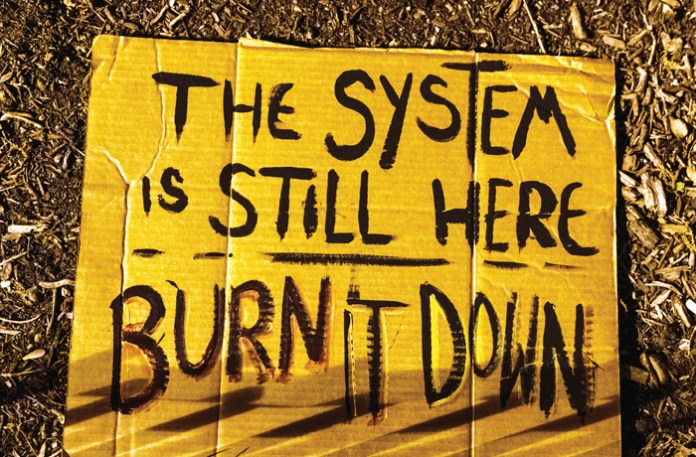 THE SYSTEM
IS STILL HERE
BURN IT DOWN